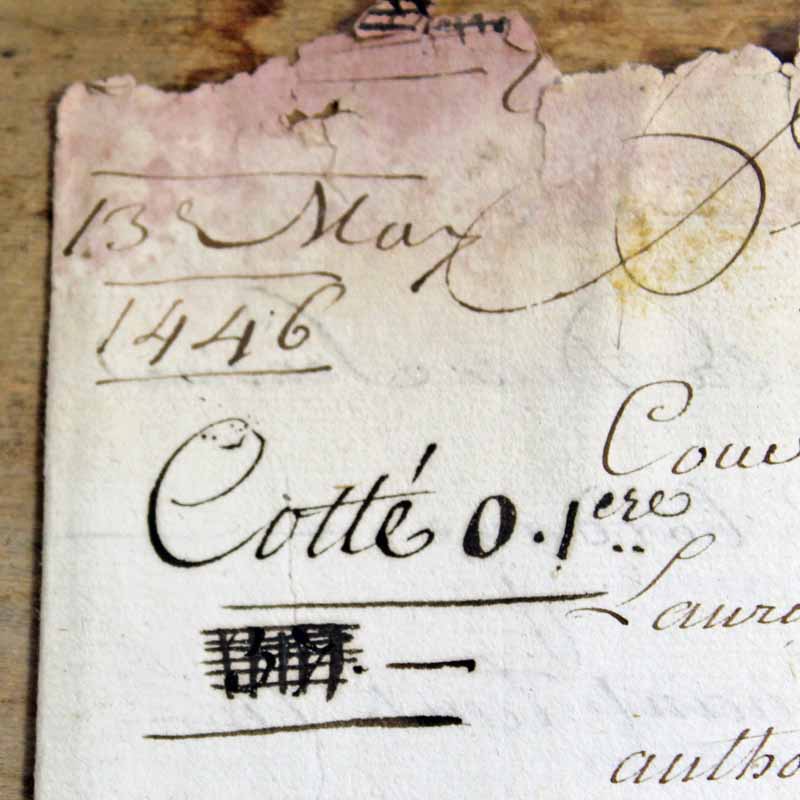 13e May
1446
Cotté O. 1ere
Laur
autho